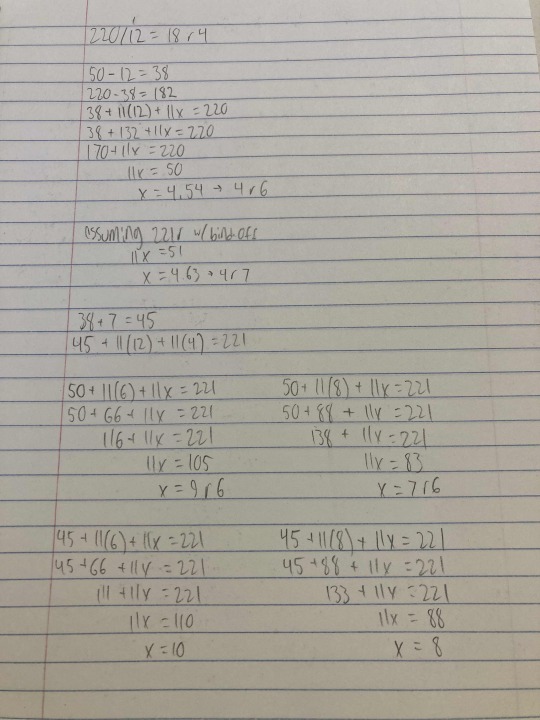 220/12 = 18 r 4
50 - 12 = 38
220 - 38 = 182
38 + 11(12) + 11x = 220
38 + 132 + 11x = 220
170 + 11x = 220
11x = 50
x = 4.54 → 4 r 6
assuming 221r w/ bind off
11x = 51
x = 4.63 → 4 r 7
38 + 7 = 45
45 + 11(12) + 11(4) = 221
50 + 11(6) + 11x = 221
50 + 66 + 11x = 221
116 + 11x = 221
11x = 105
x = 9 r 6
50 + 11(8) + 11x = 221
50 + 88 + 11x = 221
138 + 11x = 221
11x = 83
x = 7 r 6
45 + 11(6) + 11x = 221
45 + 66 + 11x = 221
111 + 11x = 221
11x = 110
x = 10
45 + 11(8) + 11x = 221
45 + 88 + 11x = 221
133 + 11x = 221
11x = 88
x = 8